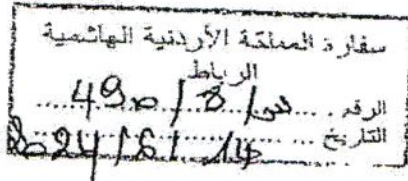 سفارة المملكة الأردنية الهاشمية
الرباط
الرقم س/3/490
التاريخ 2024/6/14